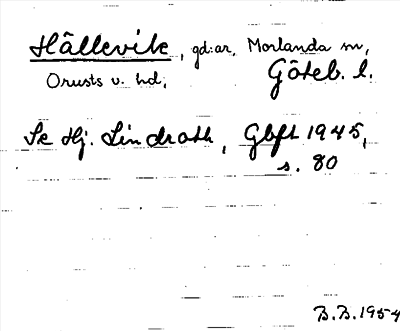 Hällevik, gd:ar, Morlanda sn,
Orusts v. hd, Göteb. l.
Se Hj. Lindroth, Gbft 1945,
s. 80
B.B. 1954